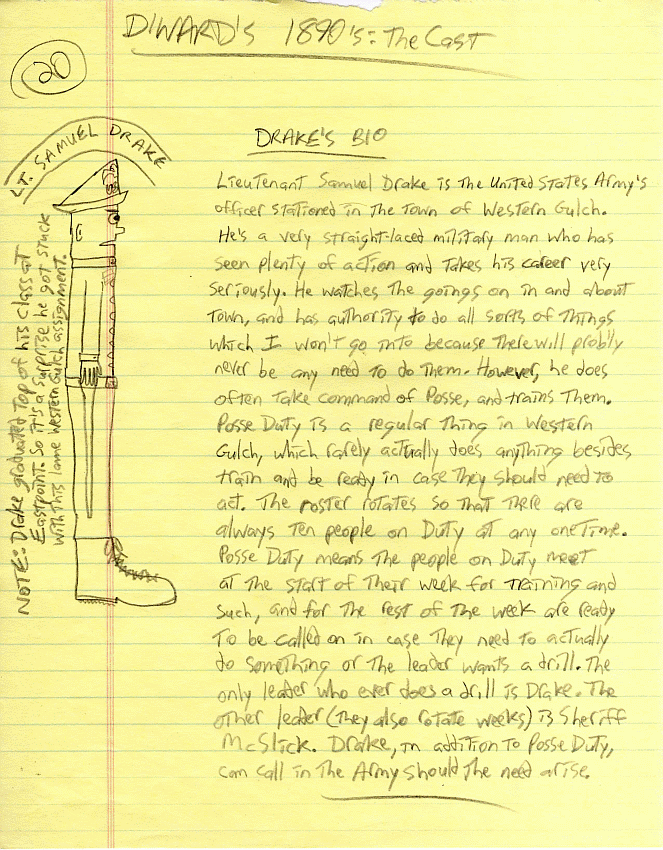 DIWARD'S 1890's: The Cast
20
LT. SAMUEL DRAKE
DRAKE'S BIO
Lieutenant Samuel Drake is the United States Army's
officer stationed in the town of Western Gulch.
He's a very straight-laced military man who has
seen plenty of action and takes his career very
seriously. He watches the goings on in and about
town, and has authority to do all sorts of things
which I won't go into because there will probly
never be any need to do them. However, he does
often take command of Posse, and trains them.
Posse Duty is a regular thing in Western
Gulch, which rarely actually does anything besides
train and be ready in case they should need to
act. The roster rotates so that there are
always ten people on Duty at any one time.
Posse Duty means the people on Duty meet
at the start of their week for training and
such, and for the rest of the week are ready
to be called on in case they need to actually
do something or the leader wants a drill. The
only leader who ever does a drill is Drake. The
other leader (they also rotate weeks) is Sheriff
McSlick. Drake, in addition to Posse Duty,
can call in the Army should the need arise.
NOTE: Drake graduated top of his class at
Eastpoint. So it's a surprise he got stuck
with this lame Western Gulch assignment.